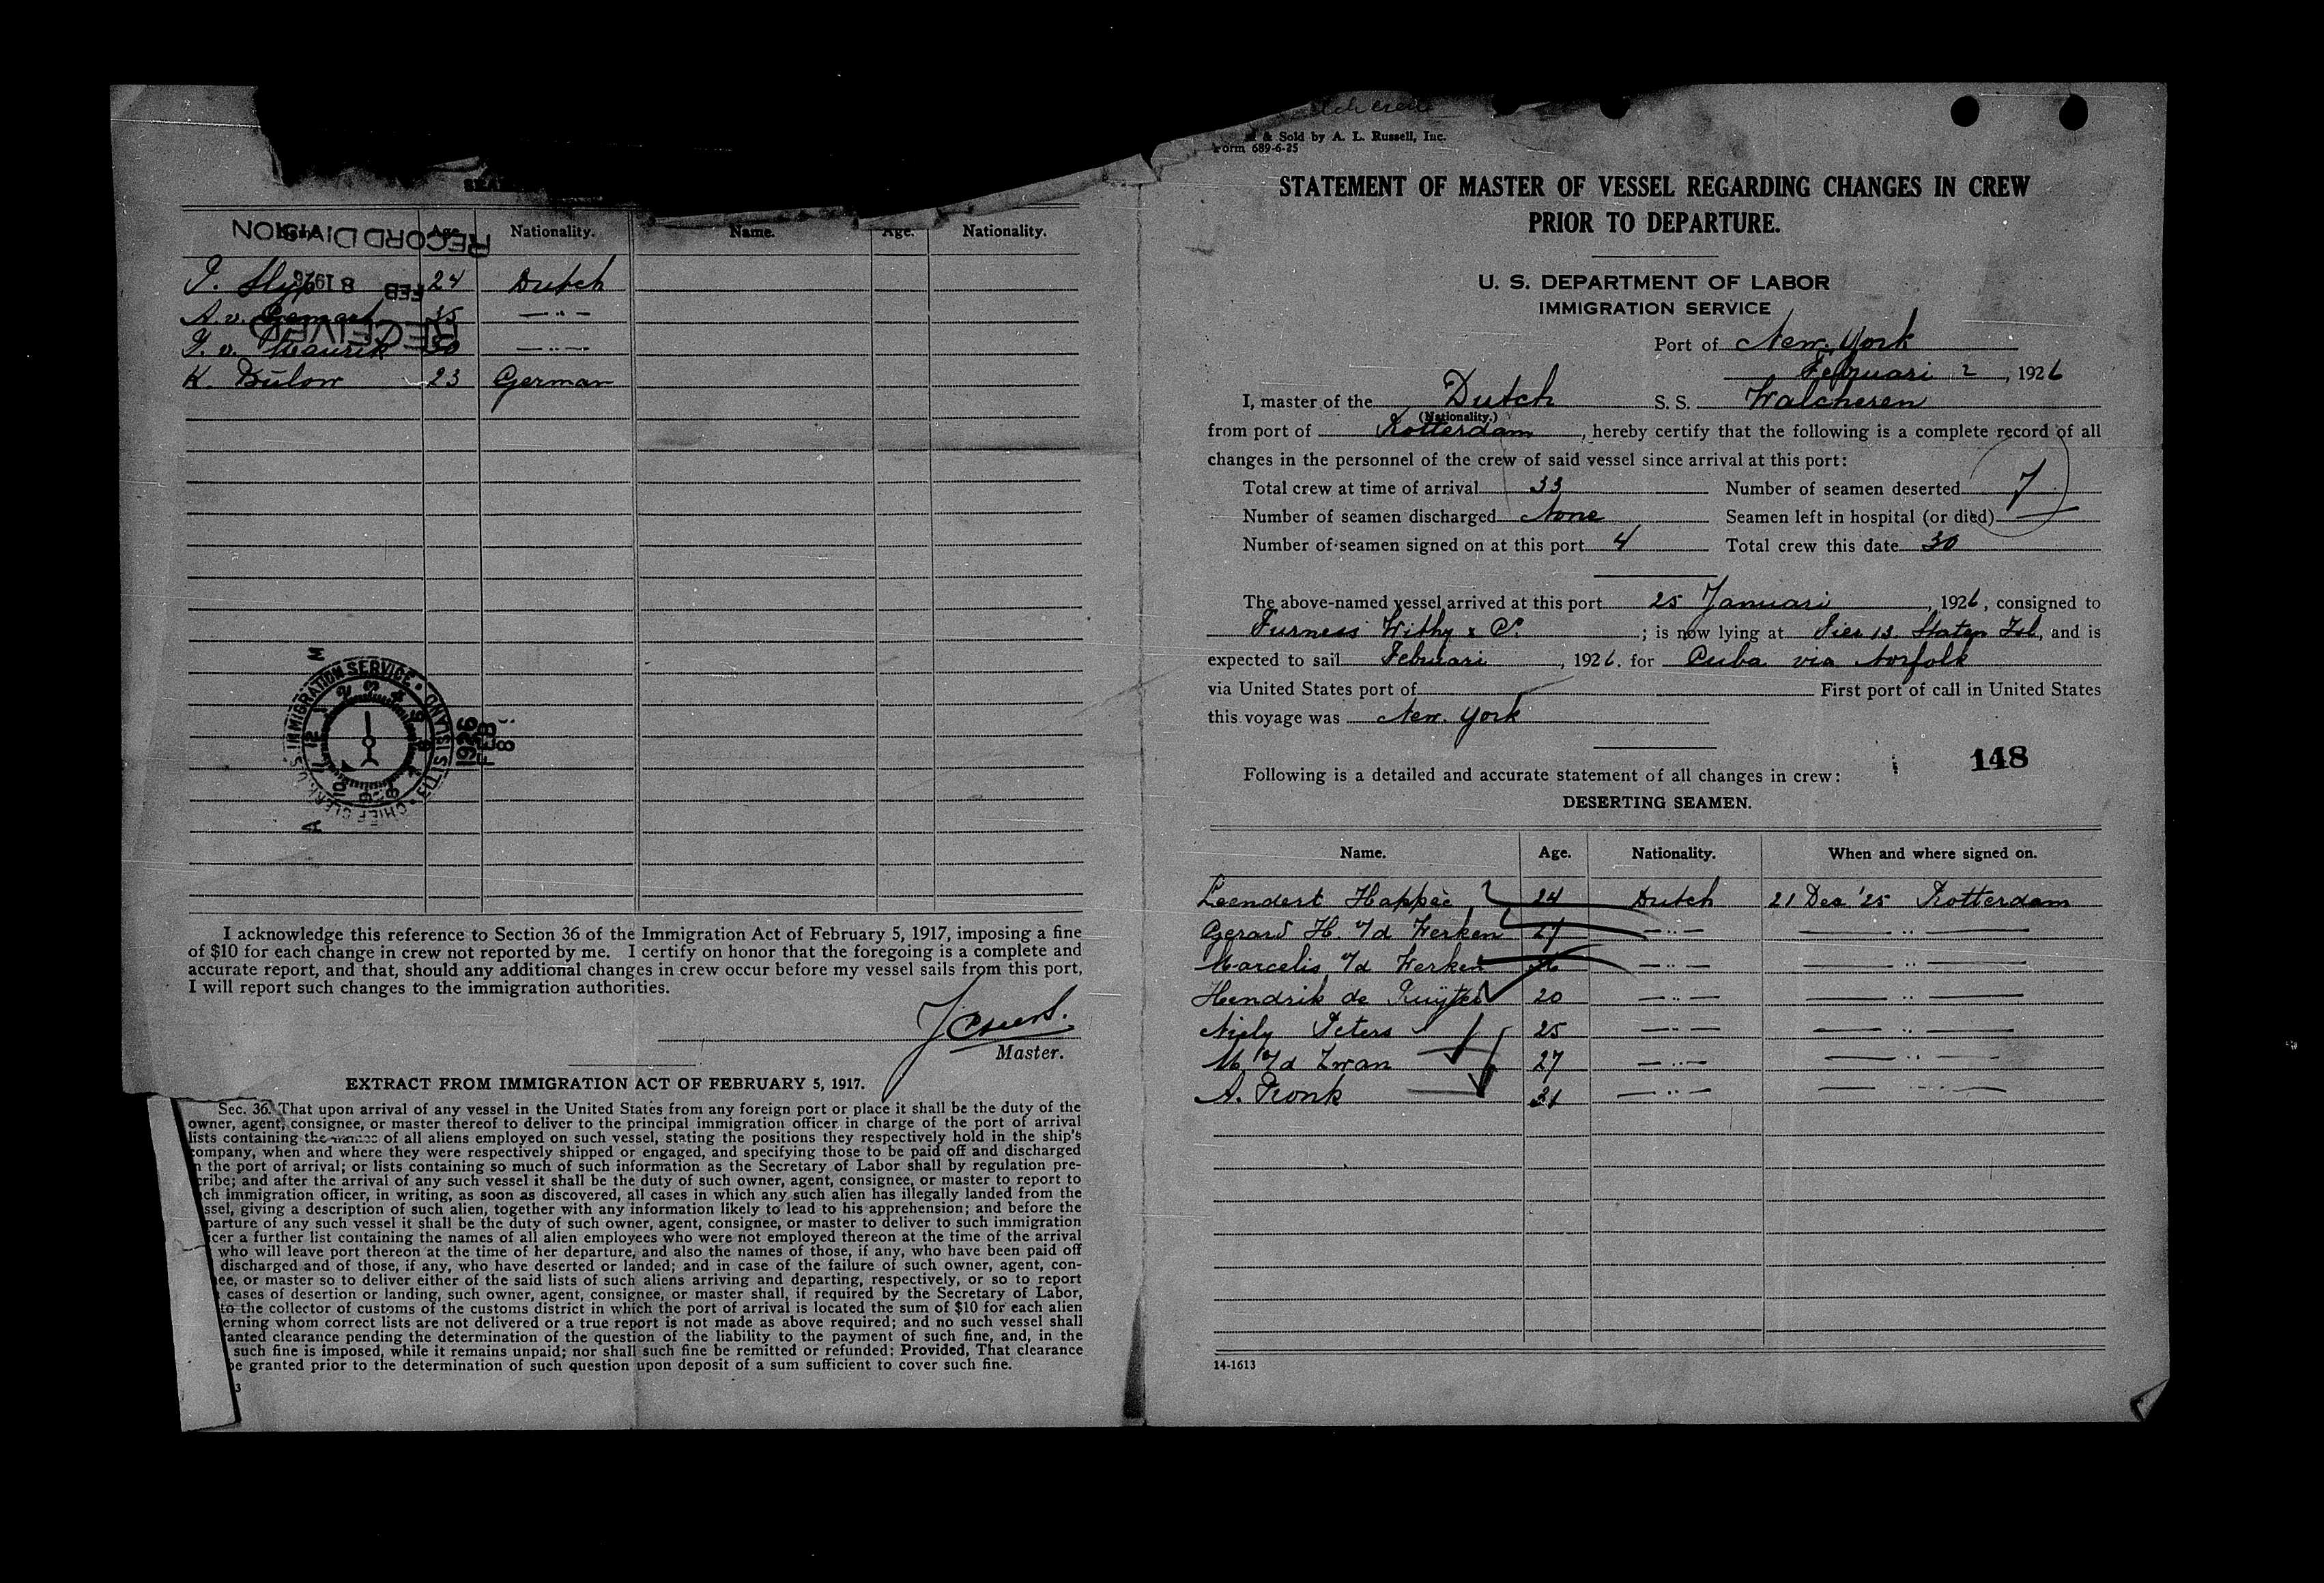 RECORD DIVISION
Age. Nationality. Name. Age. Nationality.
24 Dutch
FEB 8 1926
A. v. 35 — " —
RECEIVED
— " —
K. Bülow 23 German
CHIEF CLERK U.S. IMMIGRATION SERVICE • ELLIS ISLAND
1926 FEB 8
I acknowledge this reference to Section 36 of the Immigration Act of February 5, 1917, imposing a fine
of $10 for each change in crew not reported by me. I certify on honor that the foregoing is a complete and
accurate report, and that, should any additional changes in crew occur before my vessel sails from this port,
I will report such changes to the immigration authorities.
Master.
EXTRACT FROM IMMIGRATION ACT OF FEBRUARY 5, 1917.
Sec. 36. That upon arrival of any vessel in the United States from any foreign port or place it shall be the duty of the
owner, agent, consignee, or master thereof to deliver to the principal immigration officer in charge of the port of arrival
lists containing the names of all aliens employed on such vessel, stating the positions they respectively hold in the ship's
company, when and where they were respectively shipped or engaged, and specifying those to be paid off and discharged
n the port of arrival; or lists containing so much of such information as the Secretary of Labor shall by regulation pre-
cribe; and after the arrival of any such vessel it shall be the duty of such owner, agent, consignee, or master to report to
ch immigration officer, in writing, as soon as discovered, all cases in which any such alien has illegally landed from the
ssel, giving a description of such alien, together with any information likely to lead to his apprehension; and before the
parture of any such vessel it shall be the duty of such owner, agent, consignee, or master to deliver to such immigration
icer a further list containing the names of all alien employees who were not employed thereon at the time of the arrival
who will leave port thereon at the time of her departure, and also the names of those, if any, who have been paid off
discharged and of those, if any, who have deserted or landed; and in case of the failure of such owner, agent, con-
ee, or master so to deliver either of the said lists of such aliens arriving and departing, respectively, or so to report
cases of desertion or landing, such owner, agent, consignee, or master shall, if required by the Secretary of Labor,
to the collector of customs of the customs district in which the port of arrival is located the sum of $10 for each alien
erning whom correct lists are not delivered or a true report is not made as above required; and no such vessel shall
anted clearance pending the determination of the question of the liability to the payment of such fine, and, in the
such fine is imposed, while it remains unpaid; nor shall such fine be remitted or refunded: Provided, That clearance
be granted prior to the determination of such question upon deposit of a sum sufficient to cover such fine.
3
& Sold by A. L. Russell, Inc.
Form 689-6-25
STATEMENT OF MASTER OF VESSEL REGARDING CHANGES IN CREW
PRIOR TO DEPARTURE.
U. S. DEPARTMENT OF LABOR
IMMIGRATION SERVICE
Port of New. York
Februari 2, 1926
I, master of the Dutch S. S. Walcheren
(Nationality.)
from port of Rotterdam, hereby certify that the following is a complete record of all
changes in the personnel of the crew of said vessel since arrival at this port:
Total crew at time of arrival 33 Number of seamen deserted 7
Number of seamen discharged None Seamen left in hospital (or died) —
Number of seamen signed on at this port 4 Total crew this date 30
The above-named vessel arrived at this port 25 Januari, 1926, consigned to
Furness Withy & C°.; is now lying at Pier 13 Staten Isl, and is
expected to sail Februari, 1926. for Cuba via Norfolk
via United States port of — First port of call in United States
this voyage was New. York
148
Following is a detailed and accurate statement of all changes in crew:
DESERTING SEAMEN.
Name. Age. Nationality. When and where signed on.
Leendert Happèe 24 Dutch 21 Dec '25 Rotterdam
Gerard H. v/d Werken 21 — " — — " —
Marcelis v/d Werken — " — — " —
Hendrik de Ruÿter 20 — " — — " —
Peters 25 — " — — " —
M. v/d Zwan 27 — " — — " —
A. Pronk 31 — " — — " —
14-1613